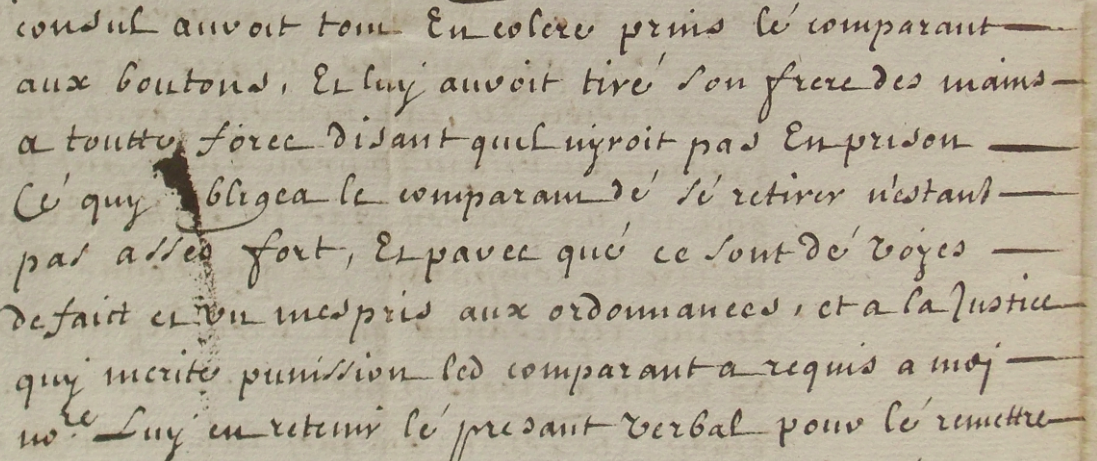 consul auvoit tout En colere prins lé comparant
aux boutons, Et luy auvoit tiré son frere des mains
a toutte force disant quil nyroit pas En prison
Cé quy obligea le comparant dé sé retirer n'estant
pas asses fort, Et parec qué ce sont dé voyes
de faict et un mespris aux ordonnances, et a la Justice
quy merite punission led comparant a requis a moy
nore Luy en retenir lé presant verbal pour lé remettre